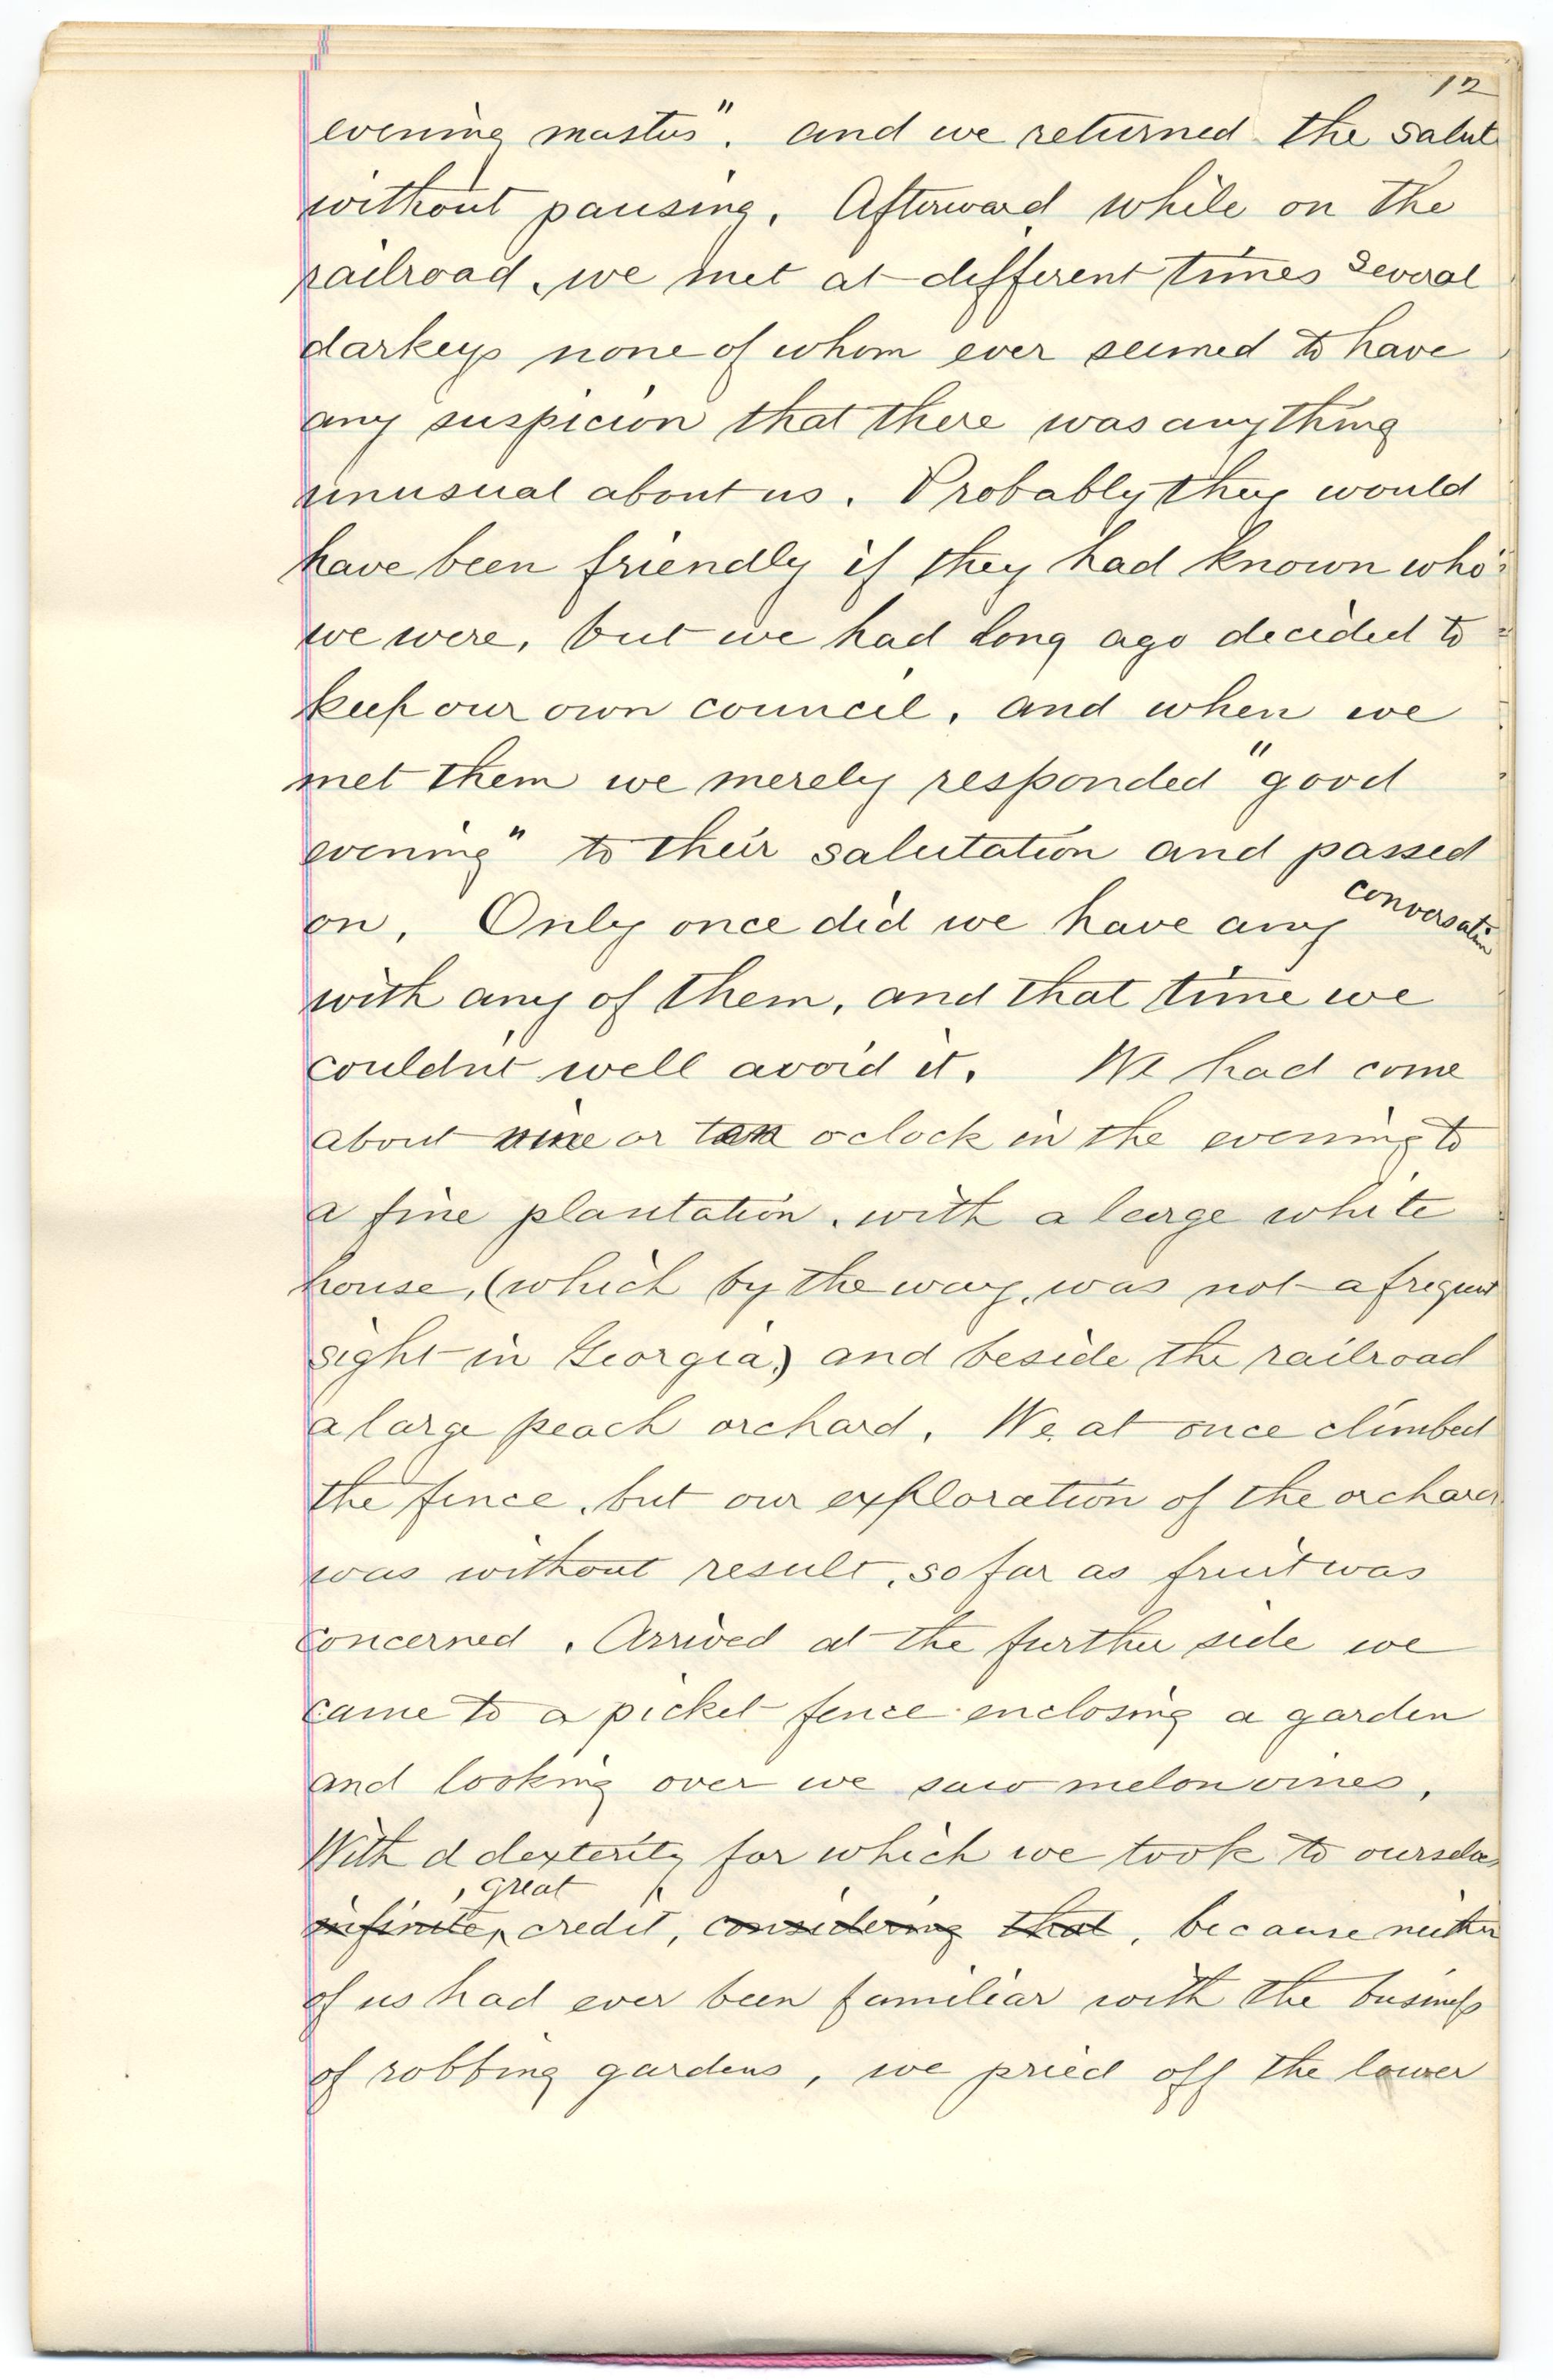 12
evening masters". and we returned the salut
without pausing. Afterward while on the
railroad, we met at different times several
darkeys none of whom ever seemed to have
any suspicion that there was anything
unusual about us. Probably they would
have been friendly if they had known who
we were, but we had long ago decided to
keep our own council, and when we
met them we merely responded "good
evening" to their salutation and passed
on. Only once did we have any conversation
with any of them, and that time we
couldn't well avoid it. We had come
about nine or ten oclock in the evening to
a fine plantation, with a large white
house, (which by the way, was not a frequent
sight in Georgia) and beside the railroad
a large peach orchard. We at once climbed
the fence, but our exploration of the orchard
was without result, so far as fruit was
concerned. Arrived at the further side we
came to a picket fence enclosing a garden
and looking over we saw melon vines.
With a dexterity for which we took to ourselves
, great
infinite, credit, considering that, because neither
of us had ever been familiar with the business
of robbing gardens, we pried off the lower